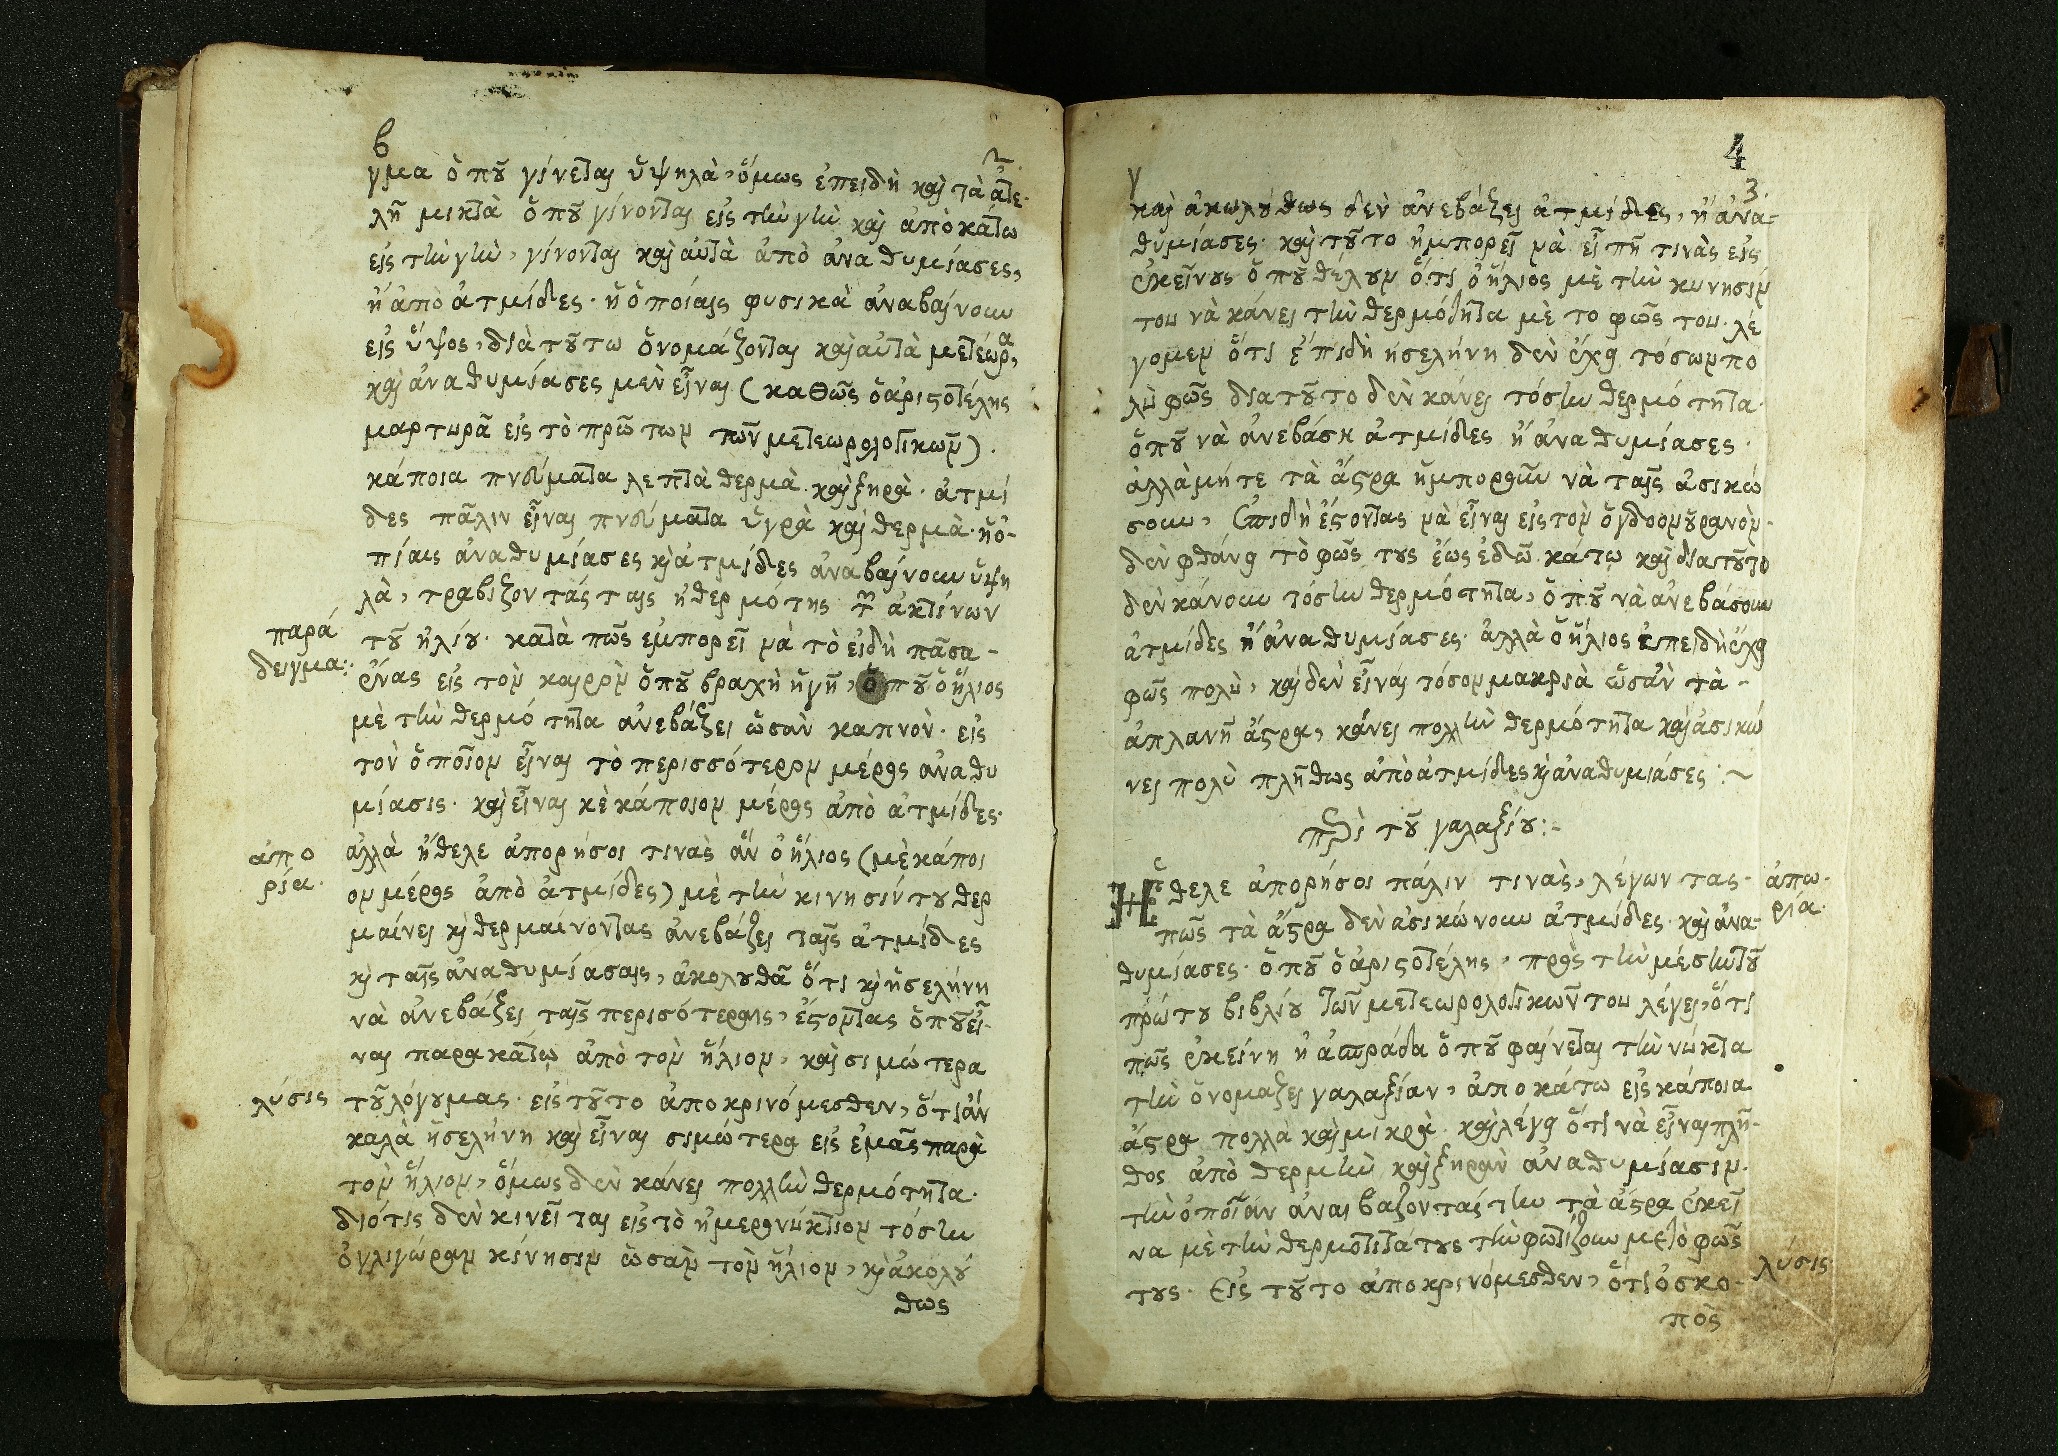 β
2
γμα ὁποῦ γίνεται ὑψηλὰ, ὅμως ἐπειδὴ καὶ τὰ ἀτε-
λῆ μικτὰ ὁποῦ γίνονται εἰς τὴν γὴν καὶ ἀπὸ κάτω
εἰς τὴν γὴν, γίνονται καὶ αὐτὰ ἀπὸ ἀναθυμίασες,
ἢ ἀπὸ ἀτμίδες. ἡ ὁποίαις φυσικὰ ἀναβαίνουν
εἰς ὕψος, διὰ τοῦτω ὀνομάζονται καὶ αὐτὰ μετέωρα,
καὶ ἀναθυμίασες μὲν εἶναι (καθὼς ὁ ἀριστοτέλης
μαρτυρᾶ εἰς τὸ πρῶτων τῶν μετεωρολογικῶν).
κάποια πνεύματα λεπτὰ θερμὰ καὶ ξηρὰ. ἀτμί
δες πάλιν εἶναι πνεύματα ὑγρὰ καὶ θερμὰ. ἡ ὁ-
πίαις ἀναθυμίασες κὶ ἀτμίδες ἀναβαίνουν ὑψη
λὰ, τραβιζοντάς ταις ἡ θερμότης τῶν ἀκτίνων
παρά
δειγμα:
τοῦ ἡλίου. κατὰ πῶς ἐμπορεῖ νὰ τὸ εἰδῆ πᾶσα-
ἕνας εἰς τὸν καιρὸν ὁποῦ βραχῆ ἡ γῆ, ὁποῦ ὁ ἥλιος
μὲ τὴν θερμότητα ἀνεβάζει ὡσὰν καπνὸν. εἰς
τὸν ὁποῖον εἶναι τὸ περισσότερον μέρος ἀναθυ
μίασις. καὶ εἶναι κὲ κάποιον μέρος ἀπὸ ἀτμίδες.
ἀπο
ρία.
ἀλλὰ ἤθελε ἀπορήσοι τινὰς ἂν ὁ ἥλιος (μὲ κάποι
ον μέρος ἀπὸ ἀτμίδες) μὲ τὴν κινησίν του θερ
μαίνει κὶ θερμαίνοντας ἀνεβάζει ταῖς ἀτμίδες
κὶ ταῖς ἀναθυμίασαις, ἀκολουθᾶ ὅτι κὶ ἡ σελήνη
νὰ ἀνεβάζει ταῖς περισότεραις, ἔστοντας ὁποῦ εἶ-
ναι παρακάτω ἀπὸ τὸν ἥλιον, καὶ σιμώτερα
λύσις
τοῦ λόγουμας. εἰς τοῦτο ἀποκρινόμεσθεν, ὅτι ἂν
καλὰ ἡ σελήνη καὶ εἶναι σιμώτερα εἰς ἐμᾶς παρὰ
τὸν ἥλιον, ὅμως δὲν κάνει πολλὴν θερμότητα.
διότις δὲν κινεῖται εἰς τὸ ἡμερονύκτιον τόσην
ὀγλιγώραν κίνησιν ὡσὰν τὸν ἥλιον, κὶ ἀκολού
θως
4
γ
3.
καὶ ἀκωλούθως δὲν ἀνεβάζει ἀτμίδες, ἢ ἀνα-
θυμίασες. καὶ τοῦτο ἠμπορεῖ νὰ εἰπῆ τινὰς εἰς
ἐκεῖνους ὁποῦ θέλουν ὅτι ὁ ἥλιος μὲ τὴν κυνησίν
του νὰ κάνει τὴν θερμότητα μὲ το φῶς του. λέ
γομεν ὅτι ἐπιδὴ ἡ σελήνη δὲν ἔχει τόσων πο
λὺ φῶς διατοῦτο δὲν κάνει τόσην θερμότητα.
ὁποῦ νὰ ἀνεβάση ἀτμίδες ἢ ἀναθυμίασες.
ἀλλὰ μήτε τὰ ἄστρα ἡμποροῦν νὰ ταῖς ἀσικώ
σουν, ἐπιδὴ ἔστοντας νὰ εἶναι εἰς τὸν ὄγδοον οὐρανὸν.
δὲν φθάνει τὸ φῶς τους ἕως ἐδῶ κάτω καὶ διατοῦτο
δὲν κάνουν τόσην θερμότητα, ὁποῦ νὰ ἀνεβάσουν
ἀτμίδες ἢ ἀναθυμίασες. ἀλλὰ ὁ ἥλιος ἐπειδὴ ἔχει
φῶς πολὺ, καὶ δὲν εἶναι τόσον μακριὰ ὡσὰν τὰ-
ἀπλανῆ ἄστρα, κάνει πολλὴν θερμότητα καὶ ἀσικώ
νει πολὺ πλῆθως ἀπὸ ἀτμίδες κὶ ἀναθυμιάσες:~
περὶ τοῦ γαλαξίου:-
Ἤθελε ἀπορήσοι πάλιν τινὰς, λέγωντας.
ἀπω-
ρία.
πῶς τὰ ἄστρα δὲν ἀσικώνουν ἀτμίδες. καὶ ἀνα-
θυμίασες. ὁποῦ ὁ ἀριστοτέλης, πρὸς τὴν μέσην τοῦ
πρώτου βιβλίου τῶν μετεωρολογικῶν του λέγει, ὅτι
πῶς ἐκείνη ἡ ἀσπράδα ὁποῦ φαίνεται τὴν νύκτα
τὴν ὀνομάζει γαλαξίαν, ἀποκάτω εἰς κάποια
ἄστρα πολλὰ καὶ μικρὰ. καὶ λέγει ὅτι νὰ εἶναι πλῆ-
θος ἀπὸ θερμὴν καὶ ξηρὰν ἀναθυμίασιν.
τὴν ὁποῖαν ἀναιβαζοντάς την τὰ ἄστρα ἐκεῖ
να μὲ τὴν θερμότιτά τους τὴν φωτίζουν μετὸ φῶς
λύσις
τους. Εἰς τοῦτο ἀποκρινόμεσθεν, ὅτι ὁ σκο-
πὸς